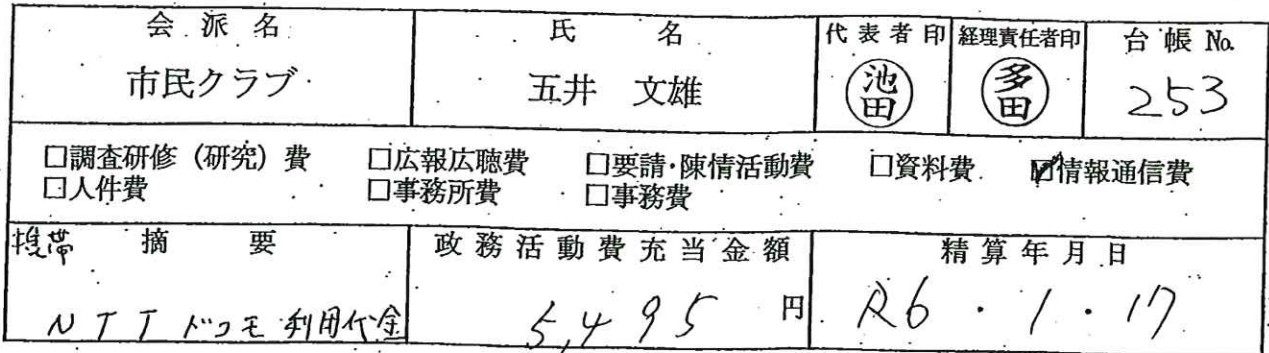 会派名 氏名 代表者印 経理責任者印 台帳 No.
市民クラブ 五井 文雄 池田 多田 253
□調査研修（研究）費 □広報広聴費 □要請・陳情活動費 □資料費 ☑情報通信費
□人件費 □事務所費 □事務費
携帯 摘要 政務活動費充当金額 精算年月日
NTTドコモ利用代金 5,495 円 R6・1・17